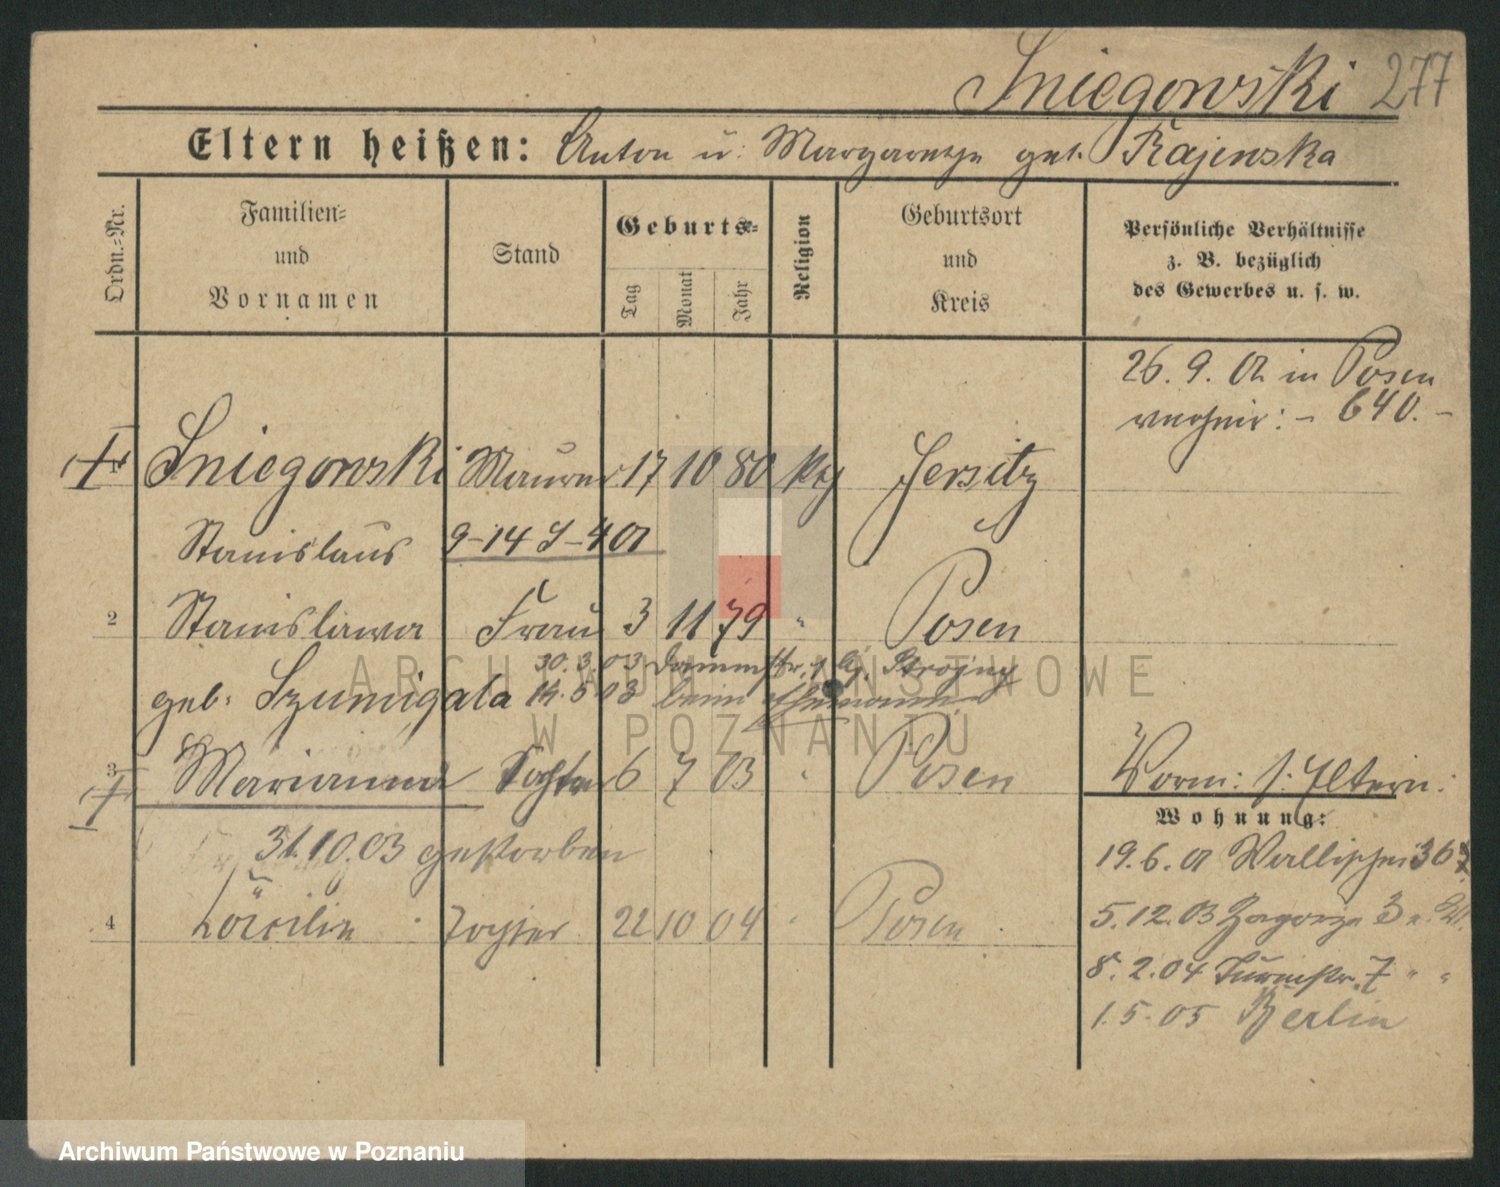 Sniegowski 277
Eltern heißen: Anton u: Margarethe geb. Rajewska
Ordn.=Nr.
Familien=
und
Vornamen
Stand
Geburts=
Tag
Monat
Jahr
Religion
Geburtsort
und
Kreis
Persönliche Verhältnisse
z. B. bezüglich
des Gewerbes u. s. w.
26. 9. 01 in Posen
verheir: – 640. –
Sniegowski Maurer 17 10 80 kth Jersitz
Stanislaus 9–14 4 01
2 Stanislawa Frau 3 11 79 " Posen
30.3.03 Dammstr. 1
geb: Szumigala 14.5.03 beim Ehemann
3 Marianna Tochter 6 7 03 " Posen Vorm: s: Eltern:
31.10.03 gestorben
4 Cäcilie Tochter 22 10 04 " Posen
Wohnung:
19.6.01 Wallischei 36
5.12.03 Zagorze 3
8.2.04 Turmstr. 7 " "
1.5.05 Berlin
ARCHIWUM PAŃSTWOWE
W POZNANIU
Archiwum Państwowe w Poznaniu